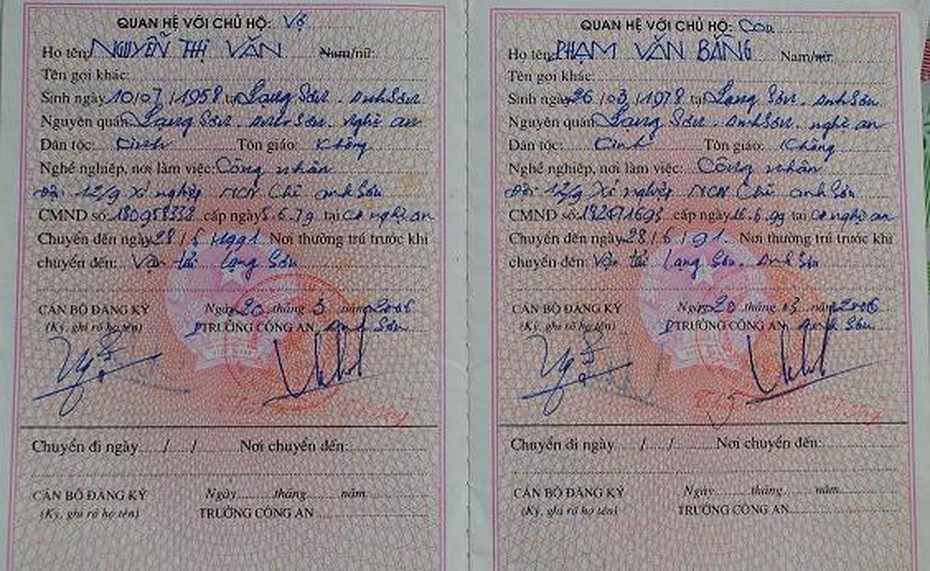 QUAN HỆ VỚI CHỦ HỘ: Vợ
Họ tên: NGUYỄN THỊ VĂN Nam/nữ:
Tên gọi khác:
Sinh ngày 10/07/1958 tại Lạng Sơn. Anh Sơn
Nguyên quán Lạng Sơn. Anh Sơn. nghệ an
Dân tộc: Kinh Tôn giáo: Không
Nghề nghiệp, nơi làm việc: Công nhân
Đội 12/9 Xí nghiệp Chè anh Sơn
CMND số: cấp ngày 5.6.79 tại CA nghệ an
Chuyển đến ngày 28/5/1991. Nơi thường trú trước khi
chuyển đến: Vận tải Lạng Sơn
CÁN BỘ ĐĂNG KÝ Ngày 20 tháng 3 năm 2006
(Ký, ghi rõ họ tên) TRƯỞNG CÔNG AN Anh Sơn
Chuyển đi ngày / / Nơi chuyển đến:
CÁN BỘ ĐĂNG KÝ Ngày tháng năm
(Ký, ghi rõ họ tên) TRƯỞNG CÔNG AN
QUAN HỆ VỚI CHỦ HỘ: Con
Họ tên: PHẠM VĂN BẰNG Nam/nữ:
Tên gọi khác:
Sinh ngày 26/03/1978 tại Lạng Sơn. Anh Sơn
Nguyên quán Lạng Sơn. Anh Sơn. nghệ an
Dân tộc: Kinh Tôn giáo: Không
Nghề nghiệp, nơi làm việc: Công nhân
Đội 12/9 Xí nghiệp Chè anh Sơn
CMND số: cấp ngày 16.6.99 tại CA nghệ an
Chuyển đến ngày 28/5/91. Nơi thường trú trước khi
chuyển đến: Vận tải Lạng Sơn. Anh Sơn
CÁN BỘ ĐĂNG KÝ Ngày 20 tháng 03 năm 2006
(Ký, ghi rõ họ tên) TRƯỞNG CÔNG AN Anh Sơn
Chuyển đi ngày / / Nơi chuyển đến:
CÁN BỘ ĐĂNG KÝ Ngày tháng năm
(Ký, ghi rõ họ tên) TRƯỞNG CÔNG AN